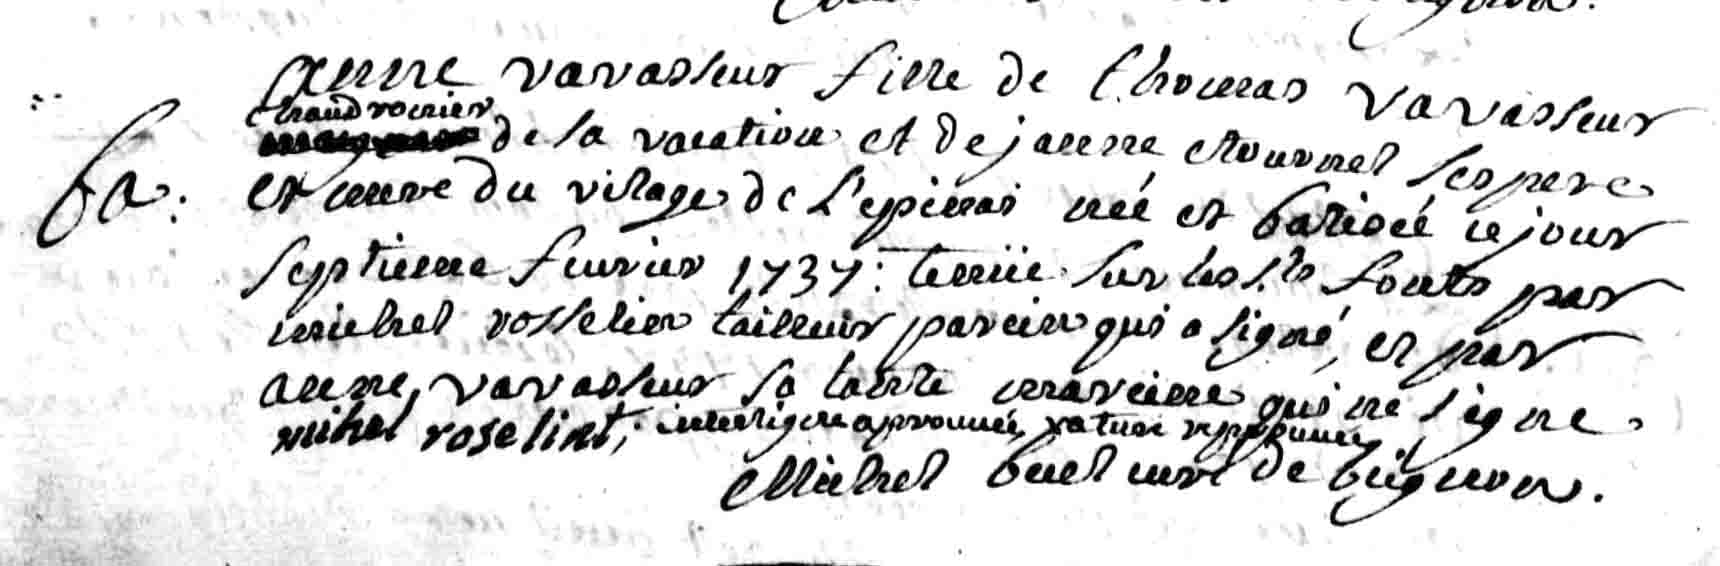 anne vavasseur fille de thomas vavasseur
chaudronnier
de sa vacation et de janne tournel ses pere
ba: et mere du vilage de L'epinai née et batisée ce jour
septieme fevrier 1737: tenüe sur les sts fonts par
michel rosselin tailleur parein qui a signé, et par
anne vavasseur sa tante mareine qui ne signe
michel roselint, interligne aprouvée rature reprouvée
Michel buel curé de